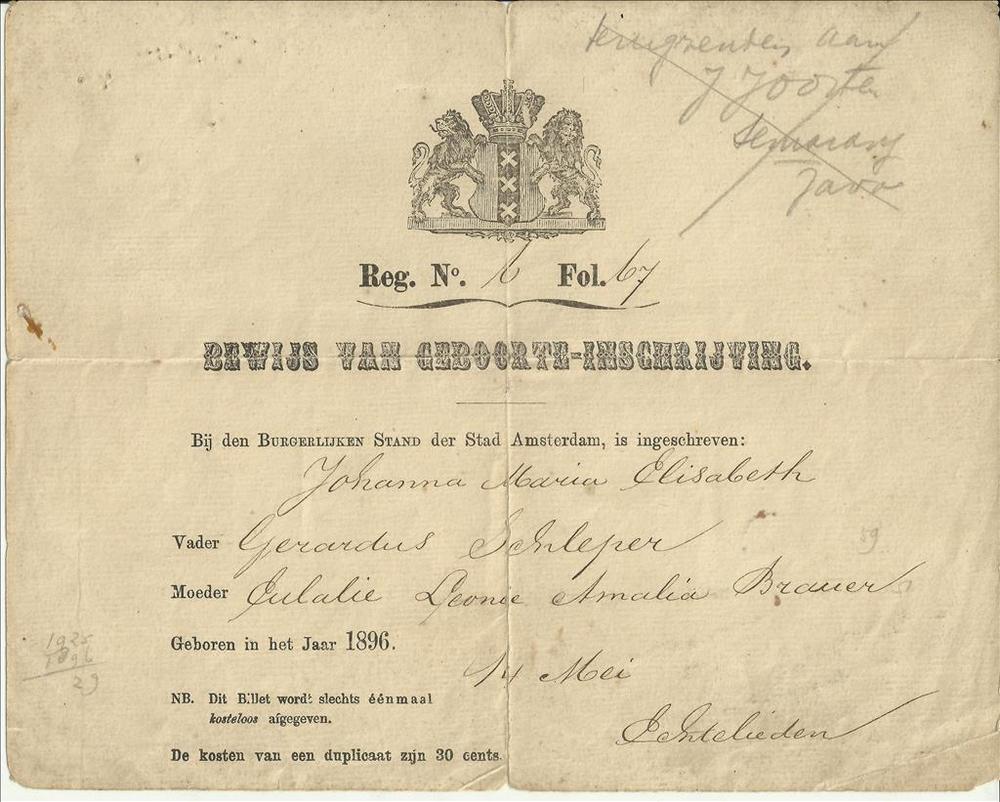 terugzenden aan
J Joosten
Semarang
Java
Reg. No. 6 Fol. 67
BEWIJS VAN GEBOORTE-INSCHRIJVING.
Bij den BURGERLIJKEN STAND der Stad Amsterdam, is ingeschreven:
Johanna Maria Elisabeth
Vader Gerardus Schleper
59
Moeder Eulalie Leonie Amalia Brauer
Geboren in het Jaar 1896.
14 Mei
1925
1896
29
NB. Dit Billet wordt slechts éénmaal
kosteloos afgegeven.
Echtelieden
De kosten van een duplicaat zijn 30 cents.